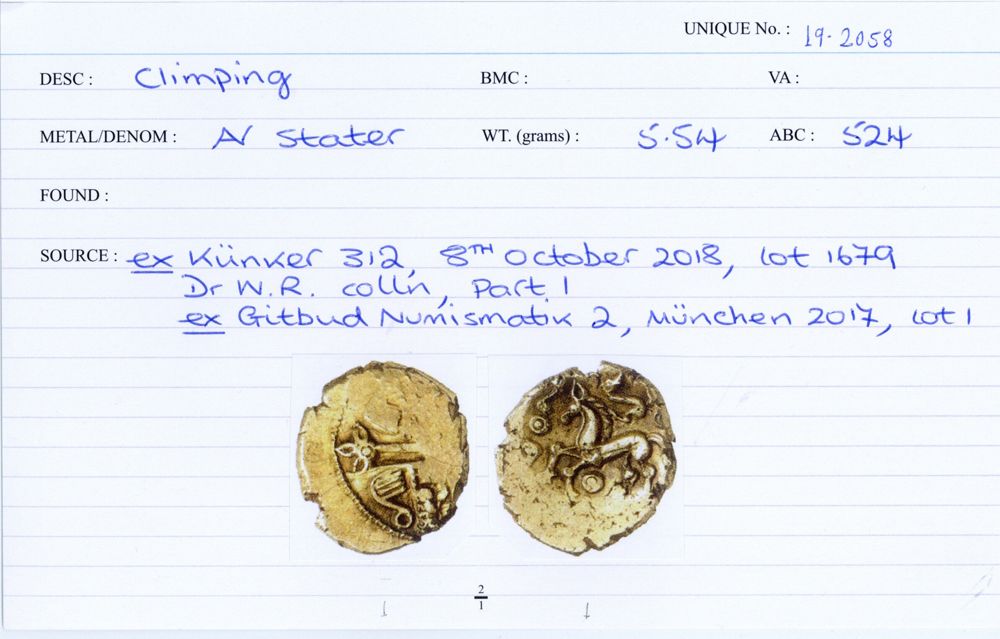 UNIQUE No. : 19-2058
DESC : Climping BMC : VA :
METAL/DENOM : AV Stater WT. (grams) : 5.54 ABC : 524
FOUND :
SOURCE : ex Künker 312, 8TH October 2018, lot 1679
Dr W.R. colln, Part 1
ex Gitbud Numismatik 2, München 2017, lot 1
2
1